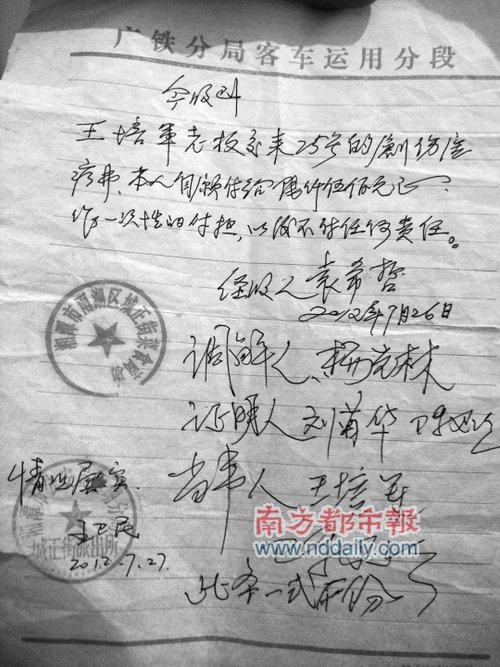 广铁分局客车运用分段
今收到
王培军老板交来25号的刷伤医
疗费、本人自愿付给 伍佰元正
作一次性的付担,以后不付任何责任。
经收人 袁希哲
2012年7月26日
湘潭市雨湖区城正街
调解人、
证明人 刘菊华
当事人 王培军
情况属实
2012.7.27.
城正街派出所
南方都市報
www.nddaily.com
此条一式 份